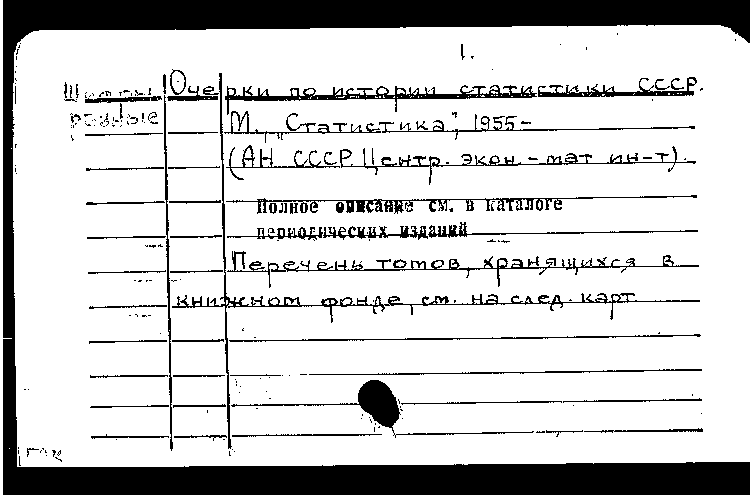 1.
Шифры Очерки по истории статистики СССР.
разные М., „Статистика", 1955-
(АН СССР. Центр. экон.-мат ин-т).
Полное описание см. в каталоге
периодических изданий
Перечень томов, хранящихся в
книжном фонде, см. на след. карт